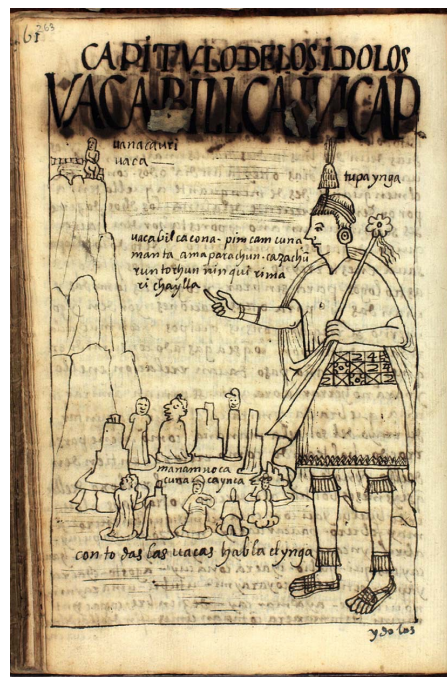 61
263
CAPITVLODELOSIDOLOS
VACABILLCAINCAP
uanacauri
uaca
tupa ynga
uacabilcacona - pim cam cuna
manta ama parachun - cazachu
runtochun ninqui rima
ri chaylla
manam noca
cuna caynca
con to das las uacas habla el ynga
ydolos